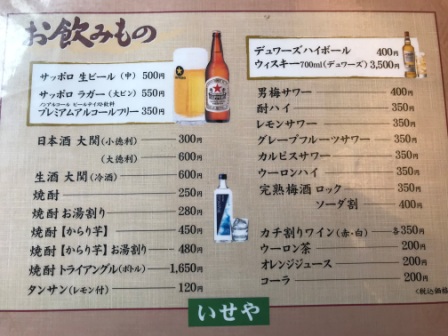 お飲みもの
サッポロ 生ビール (中) 500円
サッポロ ラガー (大ビン) 550円
ノンアルコール ビールテイスト飲料
プレミアムアルコールフリー 350円
日本酒 大関 (小徳利) 300円
(大徳利) 550円
生酒 大関 (冷酒) 600円
焼酎 250円
焼酎 お湯割り 280円
焼酎【からり芋】 450円
焼酎【からり芋】お湯割り 480円
焼酎 トライアングル (ボトル) 1,650円
タンサン (レモン付) 120円
デュワーズハイボール 400円
ウィスキー700ml (デュワーズ) 3,500円
男梅サワー 400円
酎ハイ 350円
レモンサワー 350円
グレープフルーツサワー 350円
カルピスサワー 350円
ウーロンハイ 350円
完熟梅酒 ロック 350円
ソーダ割 400円
カチ割りワイン (赤・白) 各350円
ウーロン茶 200円
オレンジジュース 200円
コーラ 200円
(税込価格
いせや